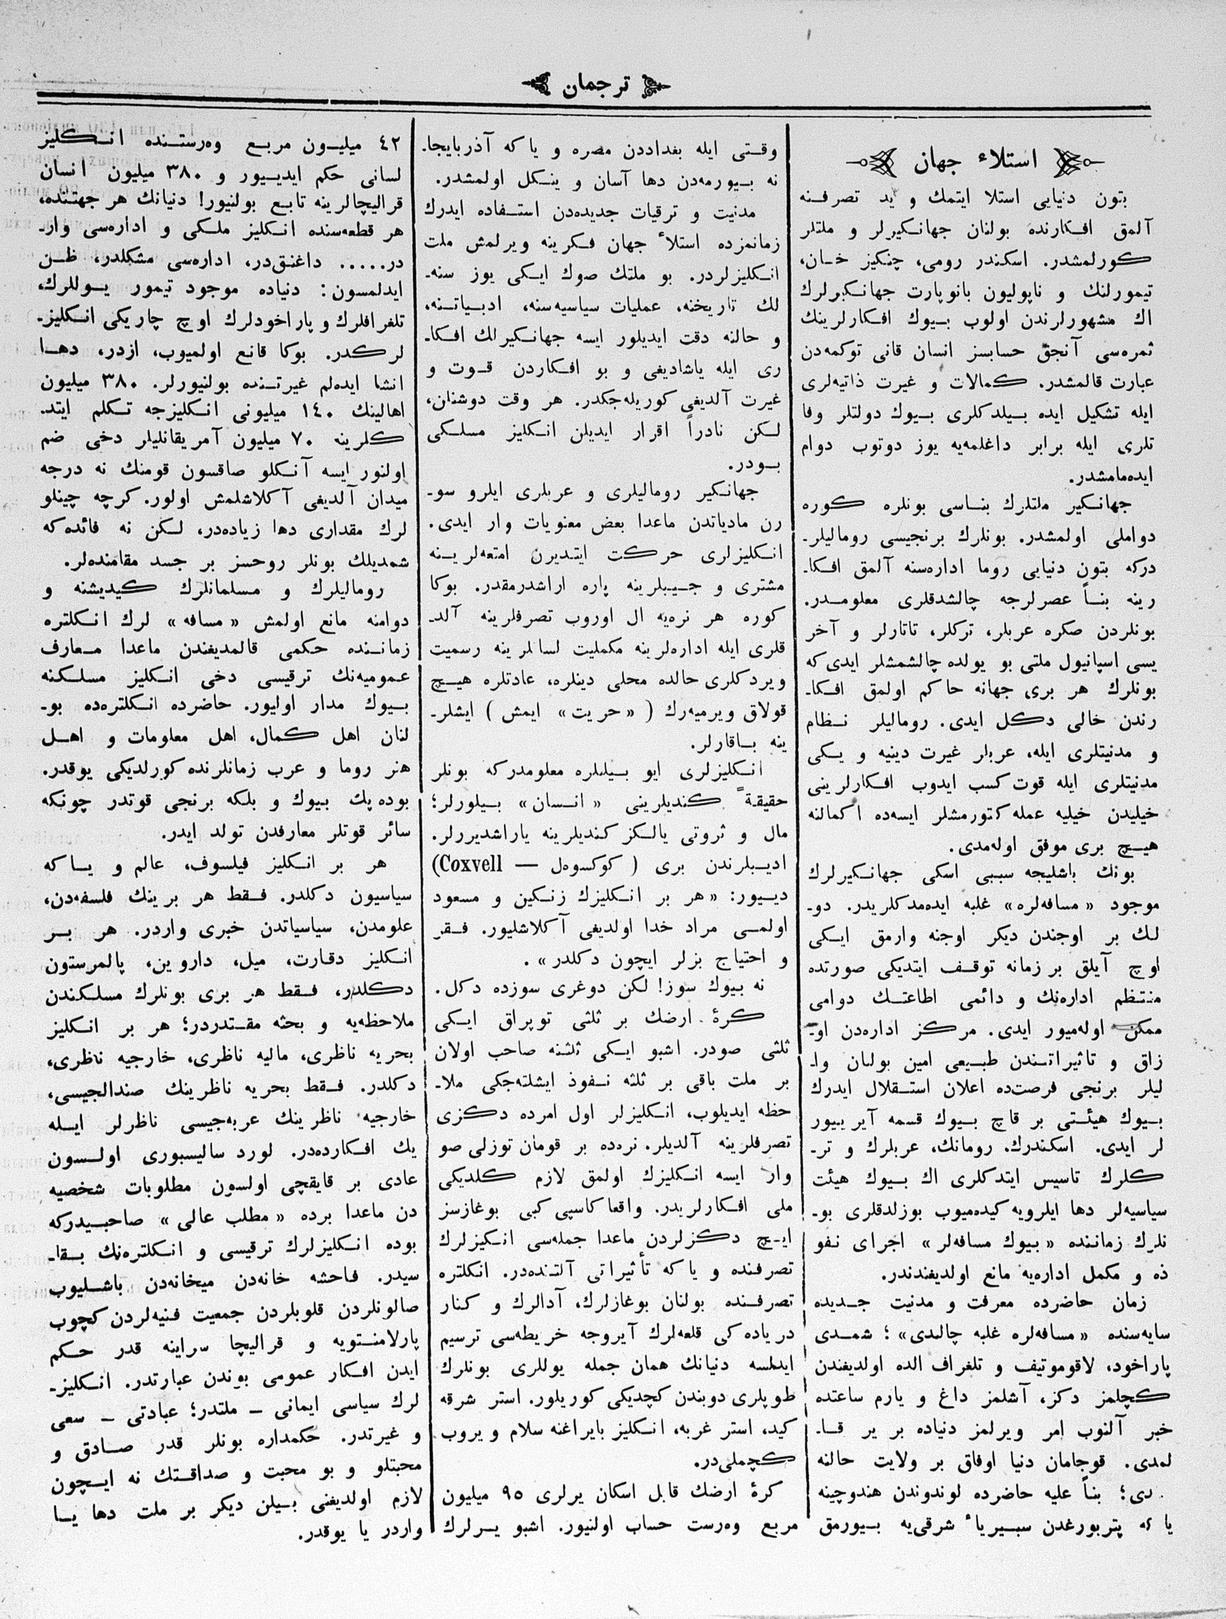 ترجمان
استلاء جهان
بتون دنیایی استلا ایتمك و ید تصرفنه
آلمق افكارنده بولنان جهانكیرلر و ملتلر
كورلمشدر. اسكندر رومی، چنكیز خان،
تیمورلنك و ناپولیون بانوپارت جهانكیرلرك
اك مشهورلرندن اولوب بیوك افكارلرینك
ثمره‌سی آنجق حسابسز انسان قانی توكمه‌دن
عبارت قالمشدر. كمالات و غیرت ذاتیه‌لری
ایله تشكیل ایده بیلدكلری بیوك دولتلر وفا
تلری ایله برابر داغلمه‌یه یوز دوتوب دوام
ایده‌مامشدر.
جهانكیر ملتلرك بناسی بونلره كوره
دواملی اولمشدر. بونلرك برنجیسی رومالیلر-
دركه بتون دنیایی روما اداره‌سنه آلمق افكا-
رینه بناً عصرلرجه چالشدقلری معلومدر.
بونلردن صكره عربلر، تركلر، تاتارلر و آخر
یسی اسپانیول ملتی بو یولده چالشمشلر ایدی‌كه
بونلرك هر بری جهانه حاكم اولمق افكا-
رندن خالی دكل ایدی. رومالیلر نظام
و مدنیتلری ایله، عربلر غیرت دینیه و یكی
مدنیتلری ایله قوت كسب ایدوب افكارلرینی
خیلیدن خیلیه عمله كتورمشلر ایسه‌ده اكمالنه
هیچ بری موفق اوله‌مدی.
بونك باشلیجه سببی اسكی جهانكیرلرك
موجود «مسافه‌لره» غلبه ایده‌مدكلریدر. دو-
لك بر اوجندن دیكر اوجنه وارمق ایكی
اوچ آیلق بر زمانه توقف ایتدیكی صورتده
منتظم اداره‌نك و دائمی اطاعتك دوامی
ممكن اوله‌میور ایدی. مركز اداره‌دن او-
زاق و تاثیراتندن طبیعی امین بولنان وا-
لیلر برنجی فرصت‌ده اعلان استقلال ایدرك
بیوك هیئتی بر قاچ بیوك قسمه آیریبیور
لر ایدی. اسكندرك، رومانك، عربلرك و تر-
كلرك تاسیس ایتدكلری اك بیوك هیئت
سیاسیه‌لر دها ایلرویه كیده‌میوب بوزلدقلری بو-
نلرك زماننده «بیوك مسافه‌لر» اجرای نفو
ذه و مكمل اداره‌یه مانع اولدیغندندر.
زمان حاضرده معرفت و مدنیت جدیده
سایه‌سنده «مسافه‌لره غلبه چالدی»؛ شمدی
پاراخود، لاقوموتیف و تلغراف الده اولدیغندن
كچلمز دكز، آشلمز داغ و یارم ساعتده
خبر آلنوب امر ویرلمز دنیاده بر یر قا-
لمدی. قوجامان دنیا اوفاق بر ولایت حالنه
دی؛ بناً علیه حاضرده لوندوندن هندوچینه
یا كه پتربورغدن سبیریاء شرقی‌یه بیورمق
وقتی ایله بغداددن مصره و یا كه آذربایجا-
نه بیورمه‌دن دها آسان و ینكل اولمشدر.
مدنیت و ترقیات جدیده‌دن استفاده ایدرك
زمانمزده استلاء جهان فكرینه ویرلمش ملت
انكلیزلردر. بو ملتك صوك ایكی یوز سنه-
لك تاریخنه، عملیات سیاسیه‌سنه، ادبیاتنه،
و حالنه دقت ایدیلور ایسه جهانكیرلك افكا-
ری ایله یاشادیغی و بو افكاردن قوت و
غیرت آلدیغی كوریله‌جكدر. هر وقت دوشنان،
لكن نادراً اقرار ایدیلن انكلیز مسلكی
بودر.
جهانكیر رومالیلری و عربلری ایلرو سو-
رن مادیاتدن ماعدا بعض معنویات وار ایدی.
انكلیزلری حركت ایتدیرن امتعه‌لرینه
مشتری و جیبلرینه پاره اراشدرمقدر. بوكا
كوره هر نره‌یه ال اوروب تصرفلرینه آلد-
قلری ایله اداره‌لرینه مكملیت لسانلرینه رسمیت
ویردكلری حالده محلی دینلره، عادتلره هیچ
قولاق ویرمیه‌رك («حریت» ایمش) ایشلر-
ینه باقارلر.
انكلیزلری ایو بیلنلره معلومدركه بونلر
حقیقةً كندیلرینی «انسان» بیلورلر؛
مال و ثروتی یالكز كندیلرینه یاراشدیررلر.
ادیبلرندن بری (كوكسوه‌ل — Coxvell)
دییور: «هر بر انكلیزك زنكین و مسعود
اولمسی مراد خدا اولدیغی آكلاشلیور. فقر
و احتیاج بزلر ایچون دكلدر».
نه بیوك سوز! لكن دوغری سوزده دكل.
كرهٔ ارضك بر ثلثی توپراق ایكی
ثلثی صودر. اشبو ایكی ثلثنه صاحب اولان
بر ملت باقی بر ثلثه نفوذ ایشلته‌جكی ملا-
حظه ایدیلوب، انكلیزلر اول امرده دكزی
تصرفلرینه آلدیلر. نره‌ده بر قومان توزلی صو
وار ایسه انكلیزك اولمق لازم كلدیكی
ملی افكارلریدر. واقعا كاسپی كبی بوغازسز
ایچ دكزلردن ماعدا جمله‌سی انكیزلرك
تصرفنده و یا كه تأثیراتی آلتنده‌در. انكلتره
تصرفنده بولنان بوغازلرك، آدالرك و كنار
دریاده‌كی قلعه‌لرك آیروجه خریطه‌سی ترسیم
ایدلسه دنیانك همان جمله یوللری بونلرك
طوپلری دوبندن كچدیكی كوریلور. استر شرقه
كید، استر غربه، انكلیز بایراغنه سلام و یروب
كچملی‌در.
كرهٔ ارضك قابل اسكان یرلری ۹۵ میلیون
مربع وه‌رست حساب اولنیور. اشبو یرلرك
۴۲ میلیون مربع وه‌رستنده انكلیز
لسانی حكم ایدییور و ۳۸۰ میلیون انسان
قرالیچالرینه تابع بولنیور! دنیانك هر جهتنده،
هر قطعه‌سنده انكلیز ملكی و اداره‌سی وار-
در..... داغنق‌در، اداره‌سی مشكلدر، ظن
ایدلمسون: دنیاده موجود تیمور یوللرك،
تلغرافلرك و پاراخودلرك اوچ چاریكی انكلیز-
لركدر. بوكا قانع اولمیوب، ازدر، دها
انشا ایده‌لم غیرتنده بولنیورلر. ۳۸۰ میلیون
اهالینك ۱۴۰ میلیونی انكلیزجه تكلم ایتد-
كلرینه ۷۰ میلیون آمریقانلیلر دخی ضم
اولنور ایسه آنكلو صاقسون قومنك نه درجه
میدان آلدیغی آكلاشلمش اولور. كرچه چینلو
لرك مقداری دها زیاده‌در، لكن نه فائده‌كه
شمدیلك بونلر روحسز بر جسد مقامنده‌لر.
رومالیلرك و مسلمانلرك كیدیشنه و
دوامنه مانع اولمش «مسافه» لرك انكلتره
زماننده حكمی قالمدیغندن ماعدا معارف
عمومیه‌نك ترقیسی دخی انكلیز مسلكنه
بیوك مدار اولیور. حاضرده انكلتره‌ده بو-
لنان اهل كمال، اهل معلومات و اهل
هنر روما و عرب زمانلرنده كورلدیكی یوقدر.
بوده پك بیوك و بلكه برنجی قوتدر چونكه
سائر قوتلر معارفدن تولد ایدر.
هر بر انكلیز فیلسوف، عالم و یا كه
سیاسیون دكلدر. فقط هر برینك فلسفه‌دن،
علومدن، سیاسیاتدن خبری واردر. هر بر
انكلیز دقارت، میل، داروین، پالمرستون
دكلدر، فقط هر بری بونلرك مسلكندن
ملاحظه‌یه و بحثه مقتدردر؛ هر بر انكلیز
بحریه ناظری، مالیه ناظری، خارجیه ناظری،
دكلدر. فقط بحریه ناظرینك صندالجیسی،
خارجیه ناظرینك عربه‌جیسی ناظرلر ایله
یك افكارده‌در. لورد سالیسبوری اولسون
عادی بر قایقچی اولسون مطلوبات شخصیه
دن ماعدا برده «مطلب عالی» صاحبیدركه
بوده انكلیزلرك ترقیسی و انكلتره‌نك بقا-
سیدر. فاحشه خانه‌دن میخانه‌دن باشلیوب
صالونلردن قلوبلردن جمعیت فنیه‌لردن كچوب
پارلامنتویه و قرالیچا سراینه قدر حكم
ایدن افكار عمومی بوندن عبارتدر. انكلیز-
لرك سیاسی ایمانی — ملتدر؛ عبادتی — سعی
و غیرتدر. حكمداره بونلر قدر صادق و
محبتلو و بو محبت و صداقتك نه ایچون
لازم اولدیغنی بیلن دیكر بر ملت دها یا
واردر یا یوقدر.